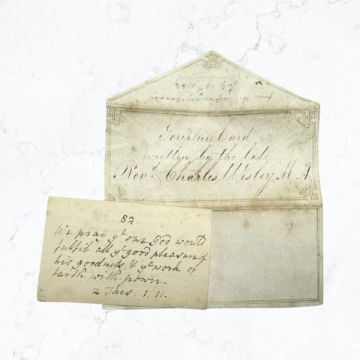 Scripture Card
written by the late
Revd. Charles Wesley M.A
82.
We pray yt our God would
fulfil all ye good pleasure of
his goodness & ye work of
faith with power.
2 Thes. 1. 11.